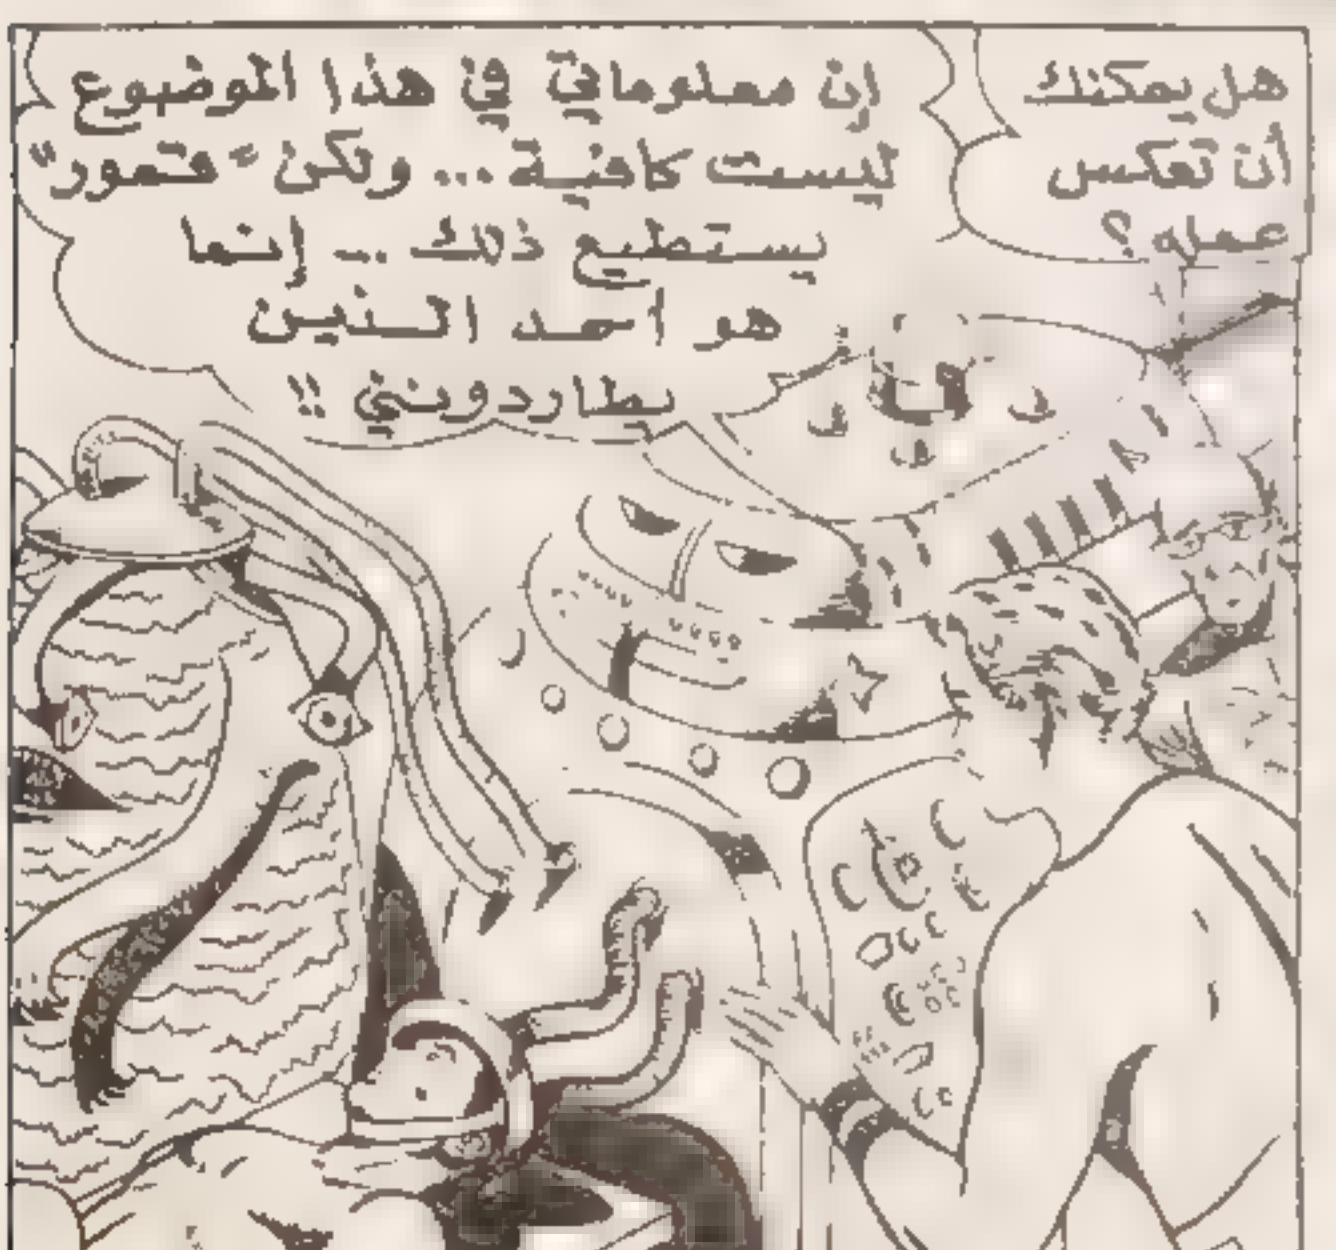 هل يمكنك
أن تعكس
عمله ؟
إن معلوماتي في هذا الموضوع
ليست كافية ... ولكن "قمور"
يستطيع ذلك ... إنما
هو احد الذين
يطاردونني !!